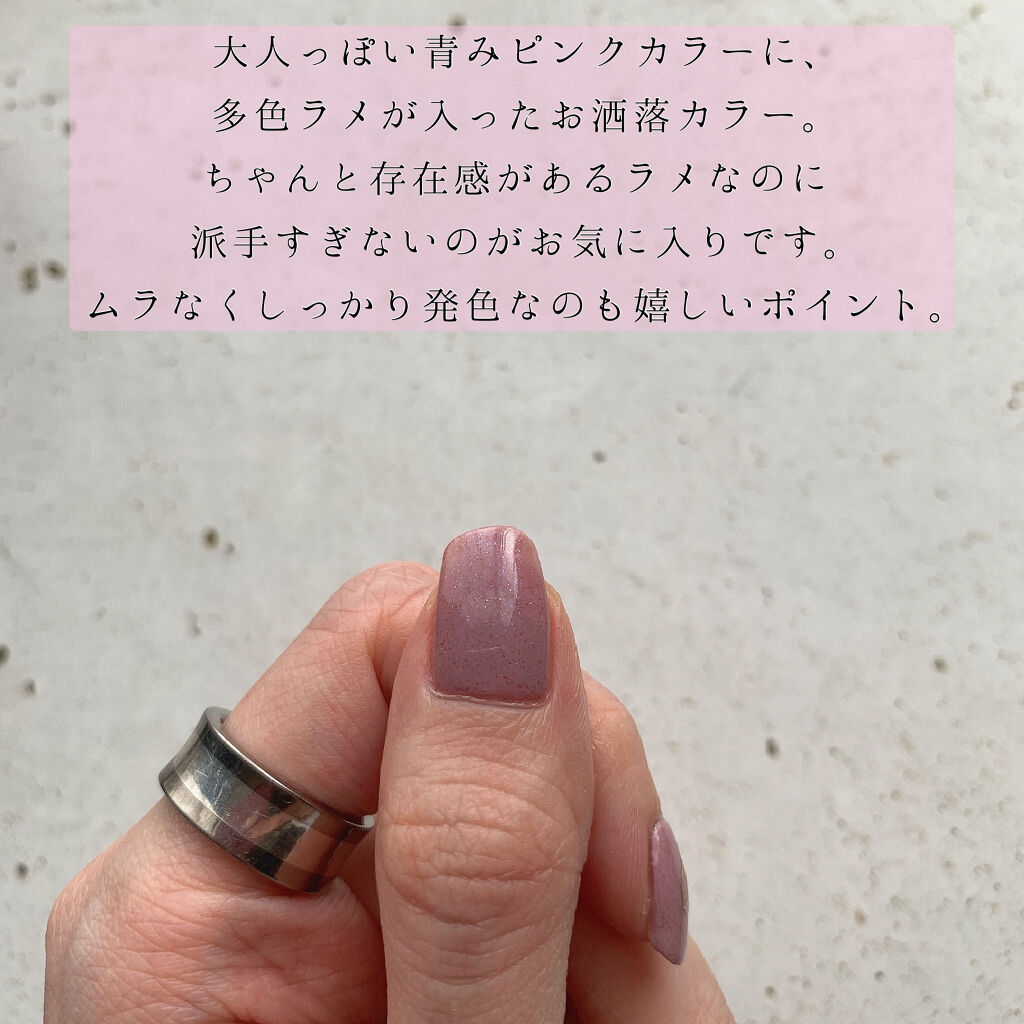 大人っぽい青みピンクカラーに、
多色ラメが入ったお洒落カラー。
ちゃんと存在感があるラメなのに
派手すぎないのがお気に入りです。
ムラなくしっかり発色なのも嬉しいポイント。